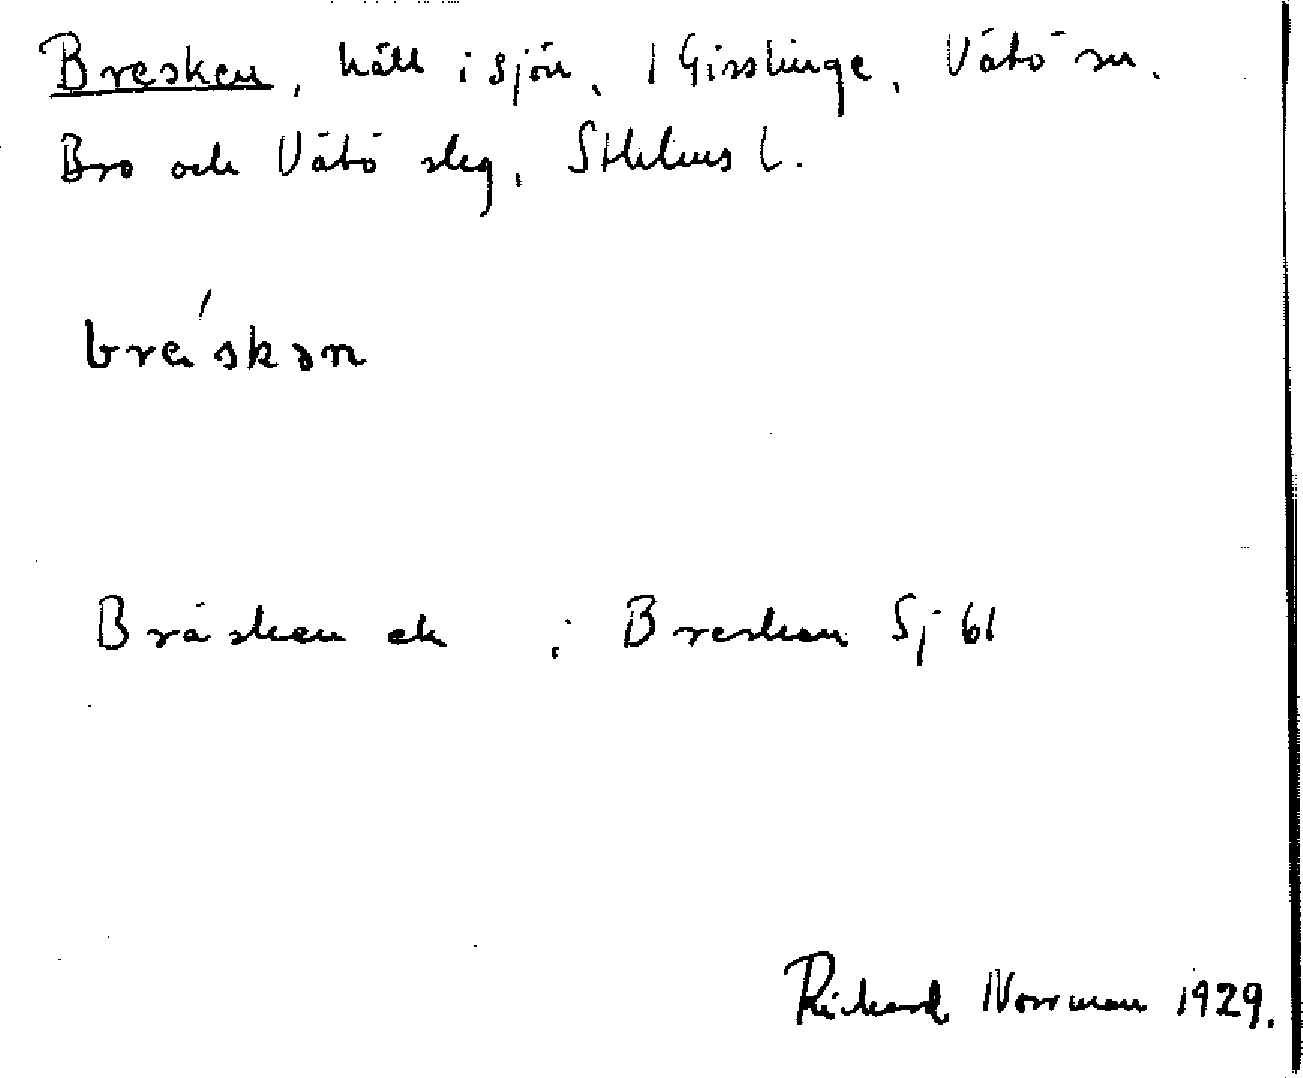 Bresken, häll i sjön, 1 Gisslinge, Vätö sn.
Bro och Vätö slg, Sthlms l.
bre´skən
Bräskan ek ; Breskan Sj 61
Rickard Norrman 1929.